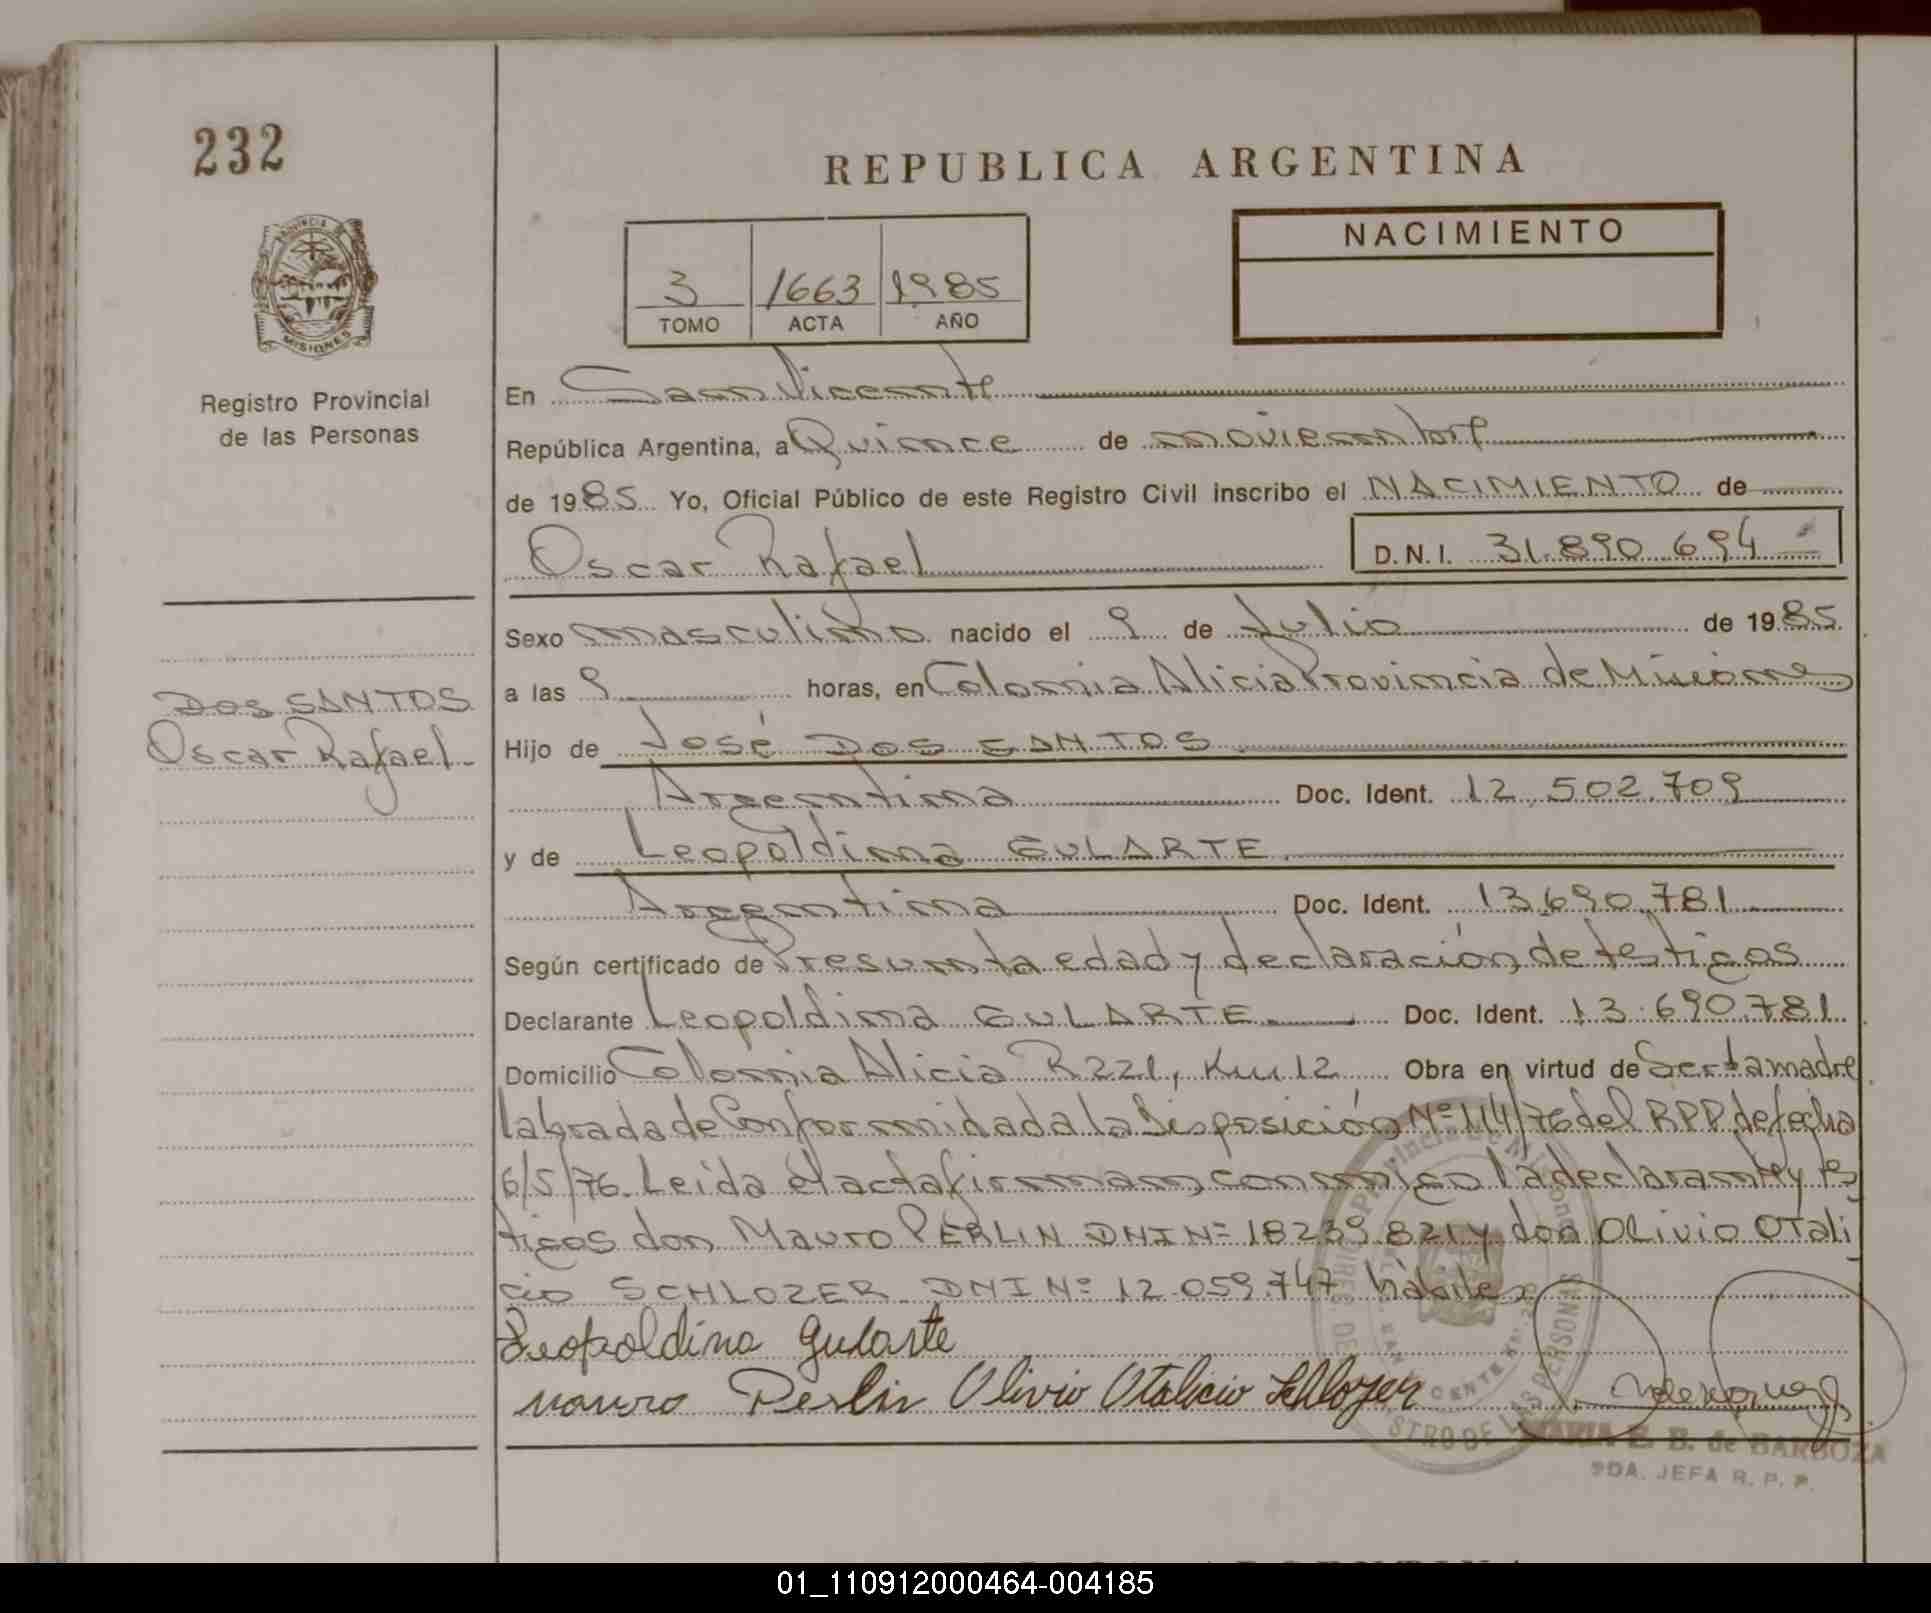 232
REPUBLICA ARGENTINA
PROVINCIA DE
MISIONES
Registro Provincial
de las Personas
3 1663 1985
TOMO ACTA AÑO
NACIMIENTO
En San Vicente
República Argentina, a Quince de noviembre
de 1985 Yo, Oficial Público de este Registro Civil inscribo el NACIMIENTO de
Oscar Rafael D.N.I. 31.890.694
Sexo masculino nacido el 9 de Julio de 1985
a las 9 horas, en Colonia Alicia Provincia de Misiones
DOS SANTOS
Oscar Rafael
Hijo de José DOS SANTOS
Argentina Doc. Ident. 12.502.709
y de Leopoldina GULARTE
Argentina Doc. Ident. 13.690.781
Según certificado de Presunta edad y declaración de testigos
Declarante Leopoldina GULARTE Doc. Ident. 13.690.781
Domicilio Colonia Alicia R221, Km 12 Obra en virtud de Ser la madre
labrada de Conformidad a la Disposición Nº 114/76 del RPP. de fecha
6/5/76. Leida el acta firman conmigo la declarante y tes
tigos don Mauro PERLIN DNI Nº 18239.821 y don Olivio Otali
cio SCHLOZER DNI Nº 12.059.747 hábiles
Leopoldina Gularte
Mauro Perlin Olivio Otalicio Schlozer
MARIA E. B. de BARBOZA
2DA. JEFA R. P. P.
01_110912000464-004185